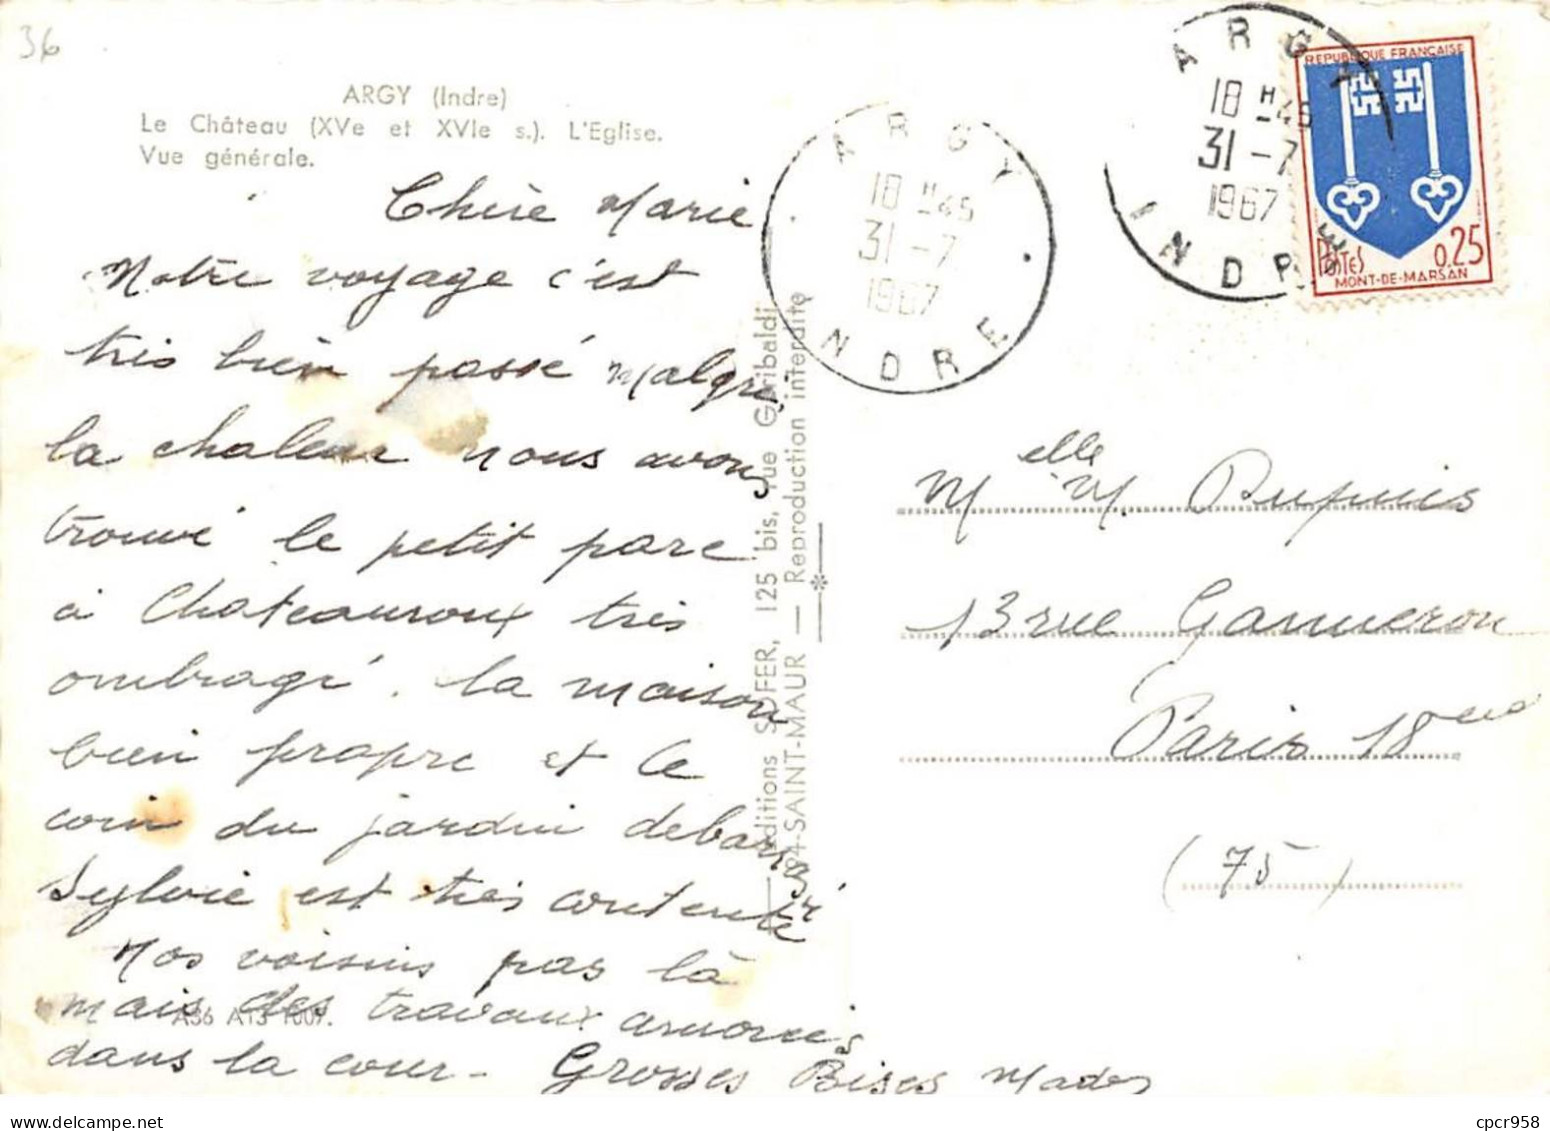 36
ARGY (Indre)
Le Château (XVe et XVIe s.). L'Eglise.
Vue générale.
Chère Marie
Notre voyage c'est
très bien passé malgré
la chaleur nous avons
trouvé le petit parc
à Chateauroux très
ombragé. la maison
bien propre et le
coin du jardin debarassé
Sylvie est très contente
Nos voisins pas là
mais des travaux amorcés
dans la cour - Grosses Bises Mado
A36 A13 1007.
Editions SOFER, 125 bis, rue Garibaldi
94-SAINT-MAUR — Reproduction interdite
ARGY
18 H45
31-7
1967
INDRE
ARGY
18 H45
31-7
1967
INDRE
REPUBLIQUE FRANÇAISE
POSTES 0,25
MONT-DE-MARSAN
Melle M. Dupuis
13 rue Ganneron
Paris 18eme
(75)
cpcr958